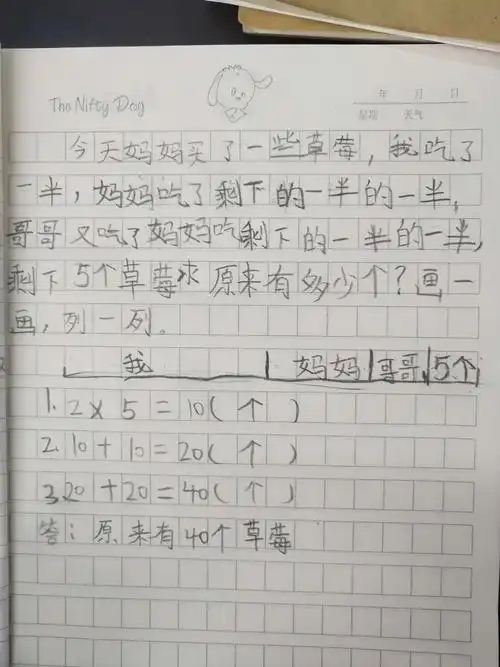 The Nifty Dog
年 月 日
星期 天气
今天妈妈买了一些草莓，我吃了
一半，妈妈吃了剩下的一半的一半，
哥哥又吃了妈妈吃剩下的一半的一半，
剩下5个草莓求原来有多少个？画一
画，列一列。
我 妈妈 哥哥 5个
1.2×5=10(个)
2.10+10=20(个)
3.20+20=40(个)
答：原来有40个草莓